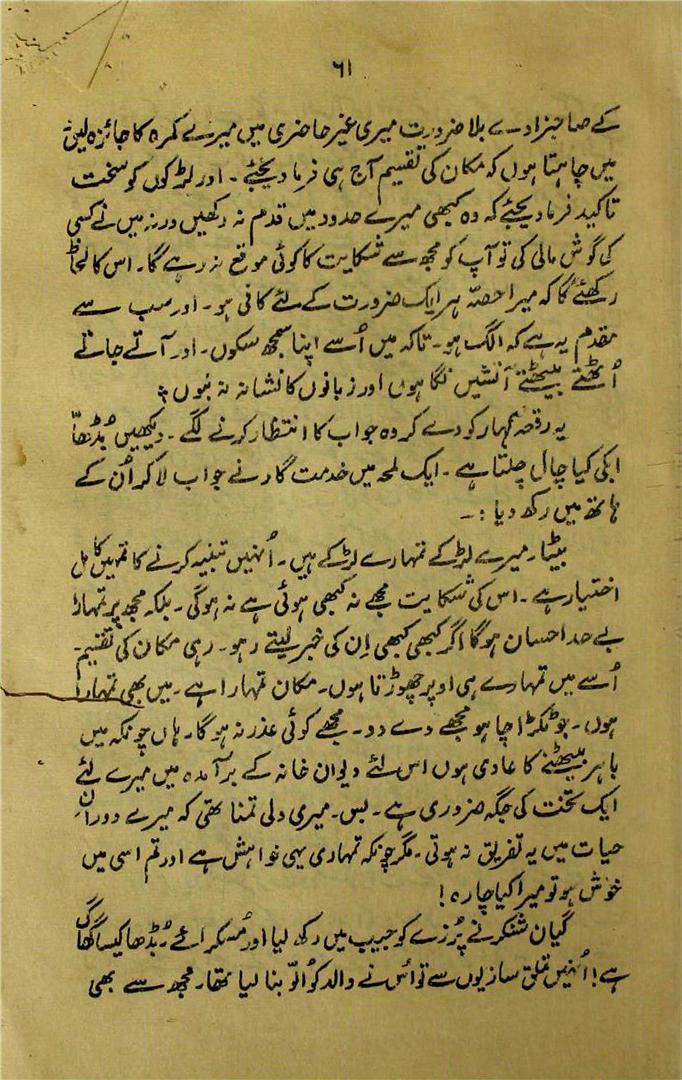 ۶۱
کے صاحبزادے بلا ضرورت میری غیر حاضری میں میرے کمرہ کا جائزہ لیں۔
میں چاہتا ہوں کہ مکان کی تقسیم آج ہی فرما دیجئے۔ اور لڑکوں کو سخت
تاکید فرما دیجئے کہ وہ کبھی میرے حدود میں قدم نہ رکھیں ورنہ میں نے کسی
کی گوش مالی کی تو آپ کو مجھ سے شکایت کا کوئی موقع نہ رہے گا۔ اس کا لحاظ
رکھئے گا کہ میرا حصّہ ہر ایک ضرورت کے لئے کافی ہو۔ اور سب سے
مقدم یہ ہے کہ الگ ہو۔ تاکہ میں اُسے اپنا سمجھ سکوں۔ اور آتے جاتے
اُٹھتے بیٹھتے آتشیں نگاہوں اور زبانوں کا نشانہ نہ بنوں؟
یہ رقعہ کہار کو دے کر وہ جواب کا انتظار کرنے لگے۔ دیکھیں بُڈھا
ابکی کیا چال چلتا ہے۔ ایک لمحہ میں خدمت گار نے جواب لا کر اُن کے
ہاتھ میں رکھ دیا :۔
بیٹا۔ میرے لڑکے تمہارے لڑکے ہیں۔ اُنہیں تنبیہ کرنے کا تمہیں کامل
اختیار ہے۔ اس کی شکایت مجھے نہ کبھی ہوئی ہے نہ ہوگی۔ بلکہ مجھ پر تمہارا
بے حد احسان ہوگا اگر کبھی کبھی اِن کی خبر لیتے رہو۔ رہی مکان کی تقسیم۔
اُسے میں تمہارے ہی اوپر چھوڑتا ہوں۔ مکان تمہارا ہے۔ میں بھی تمہارا
ہوں۔ جو ٹکڑا چاہو مجھے دے دو۔ مجھے کوئی عذر نہ ہوگا۔ ہاں چونکہ میں
باہر بیٹھنے کا عادی ہوں اس لئے دیوان خانہ کے برآمدہ میں میرے لئے
ایک تخت کی جگہ ضروری ہے۔ بس۔ میری دلی تمنا تھی کہ میرے دورانِ
حیات میں یہ تفریق نہ ہوتی۔ مگر چونکہ تمہاری یہی خواہش ہے اور تم اسی میں
خوش ہو تو میرا کیا چارہ!
گیان شنکر نے پُرزے کو جیب میں رکھ لیا اور مُسکرائے۔ بُڈھا کیسا گھاگ
ہے! اُنہیں تملق سازیوں سے تو اُس نے والد کو اُلّو بنا لیا تھا۔ مجھ سے بھی